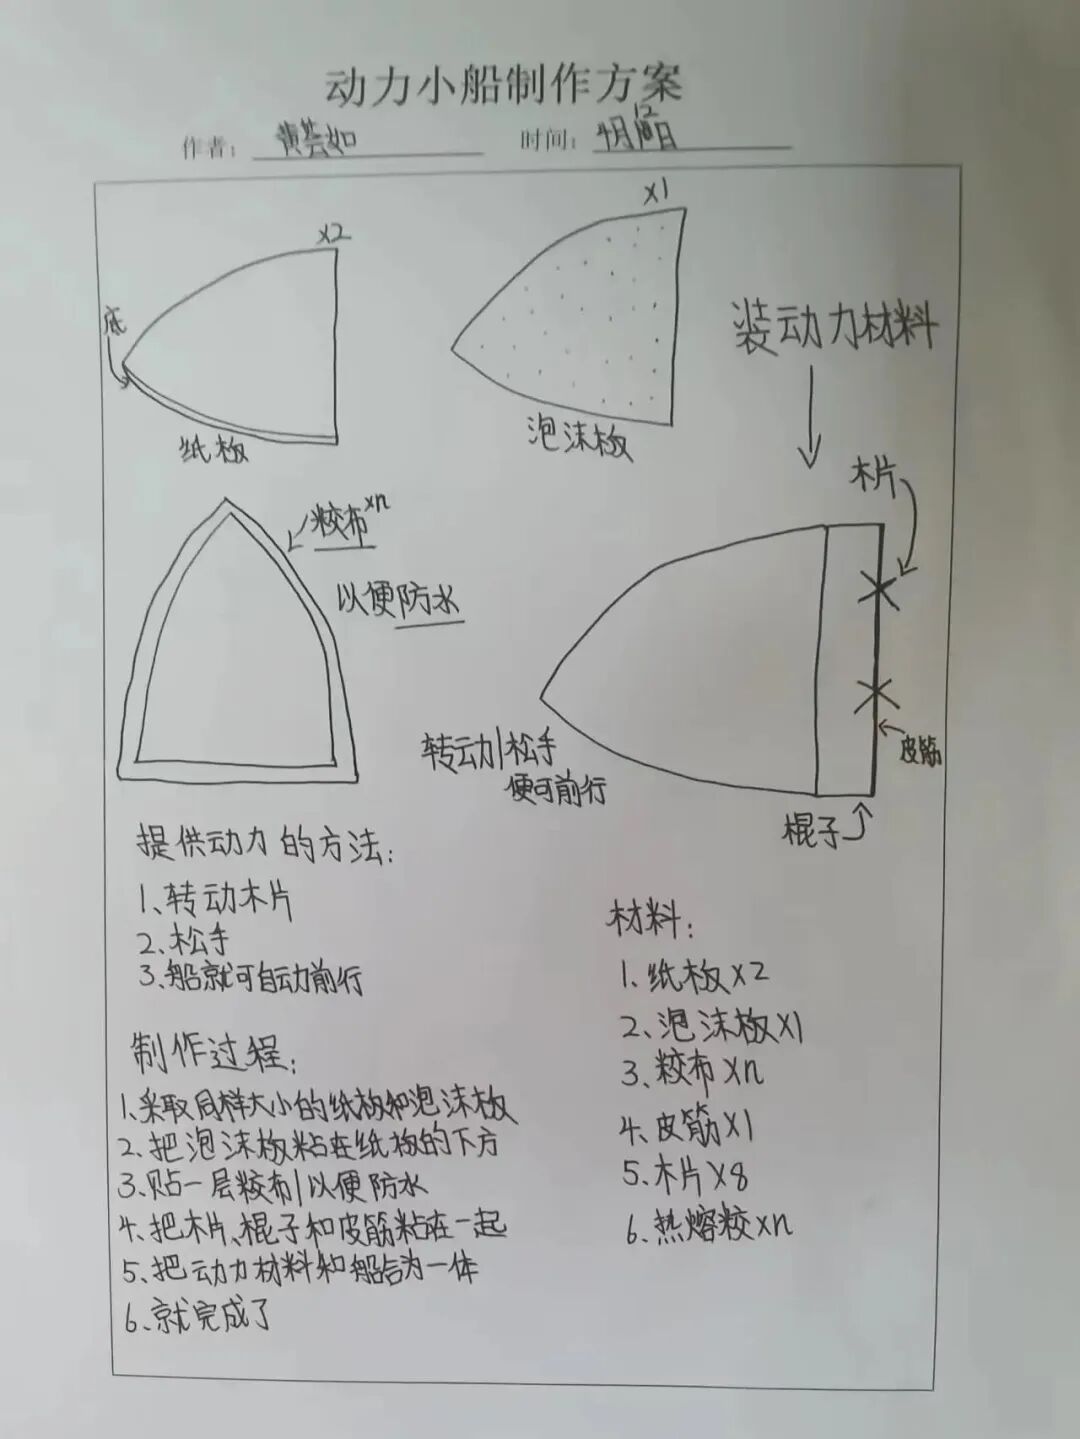 动力小船制作方案
作者：黄芸如 时间：4月12日
x2
底
纸板
x1
泡沫板
装动力材料
胶布xn
以便防水
木片
皮筋
棍子
转动|松手
便可前行
提供动力的方法：
1、转动木片
2、松手
3、船就可自动前行
制作过程：
1、采取同样大小的纸板和泡沫板
2、把泡沫板粘在纸板的下方
3、贴一层胶布|以便防水
4、把木片、棍子和皮筋粘在一起
5、把动力材料和船合为一体
6、就完成了
材料：
1、纸板x2
2、泡沫板x1
3、胶布xn
4、皮筋x1
5、木片x8
6、热熔胶xn